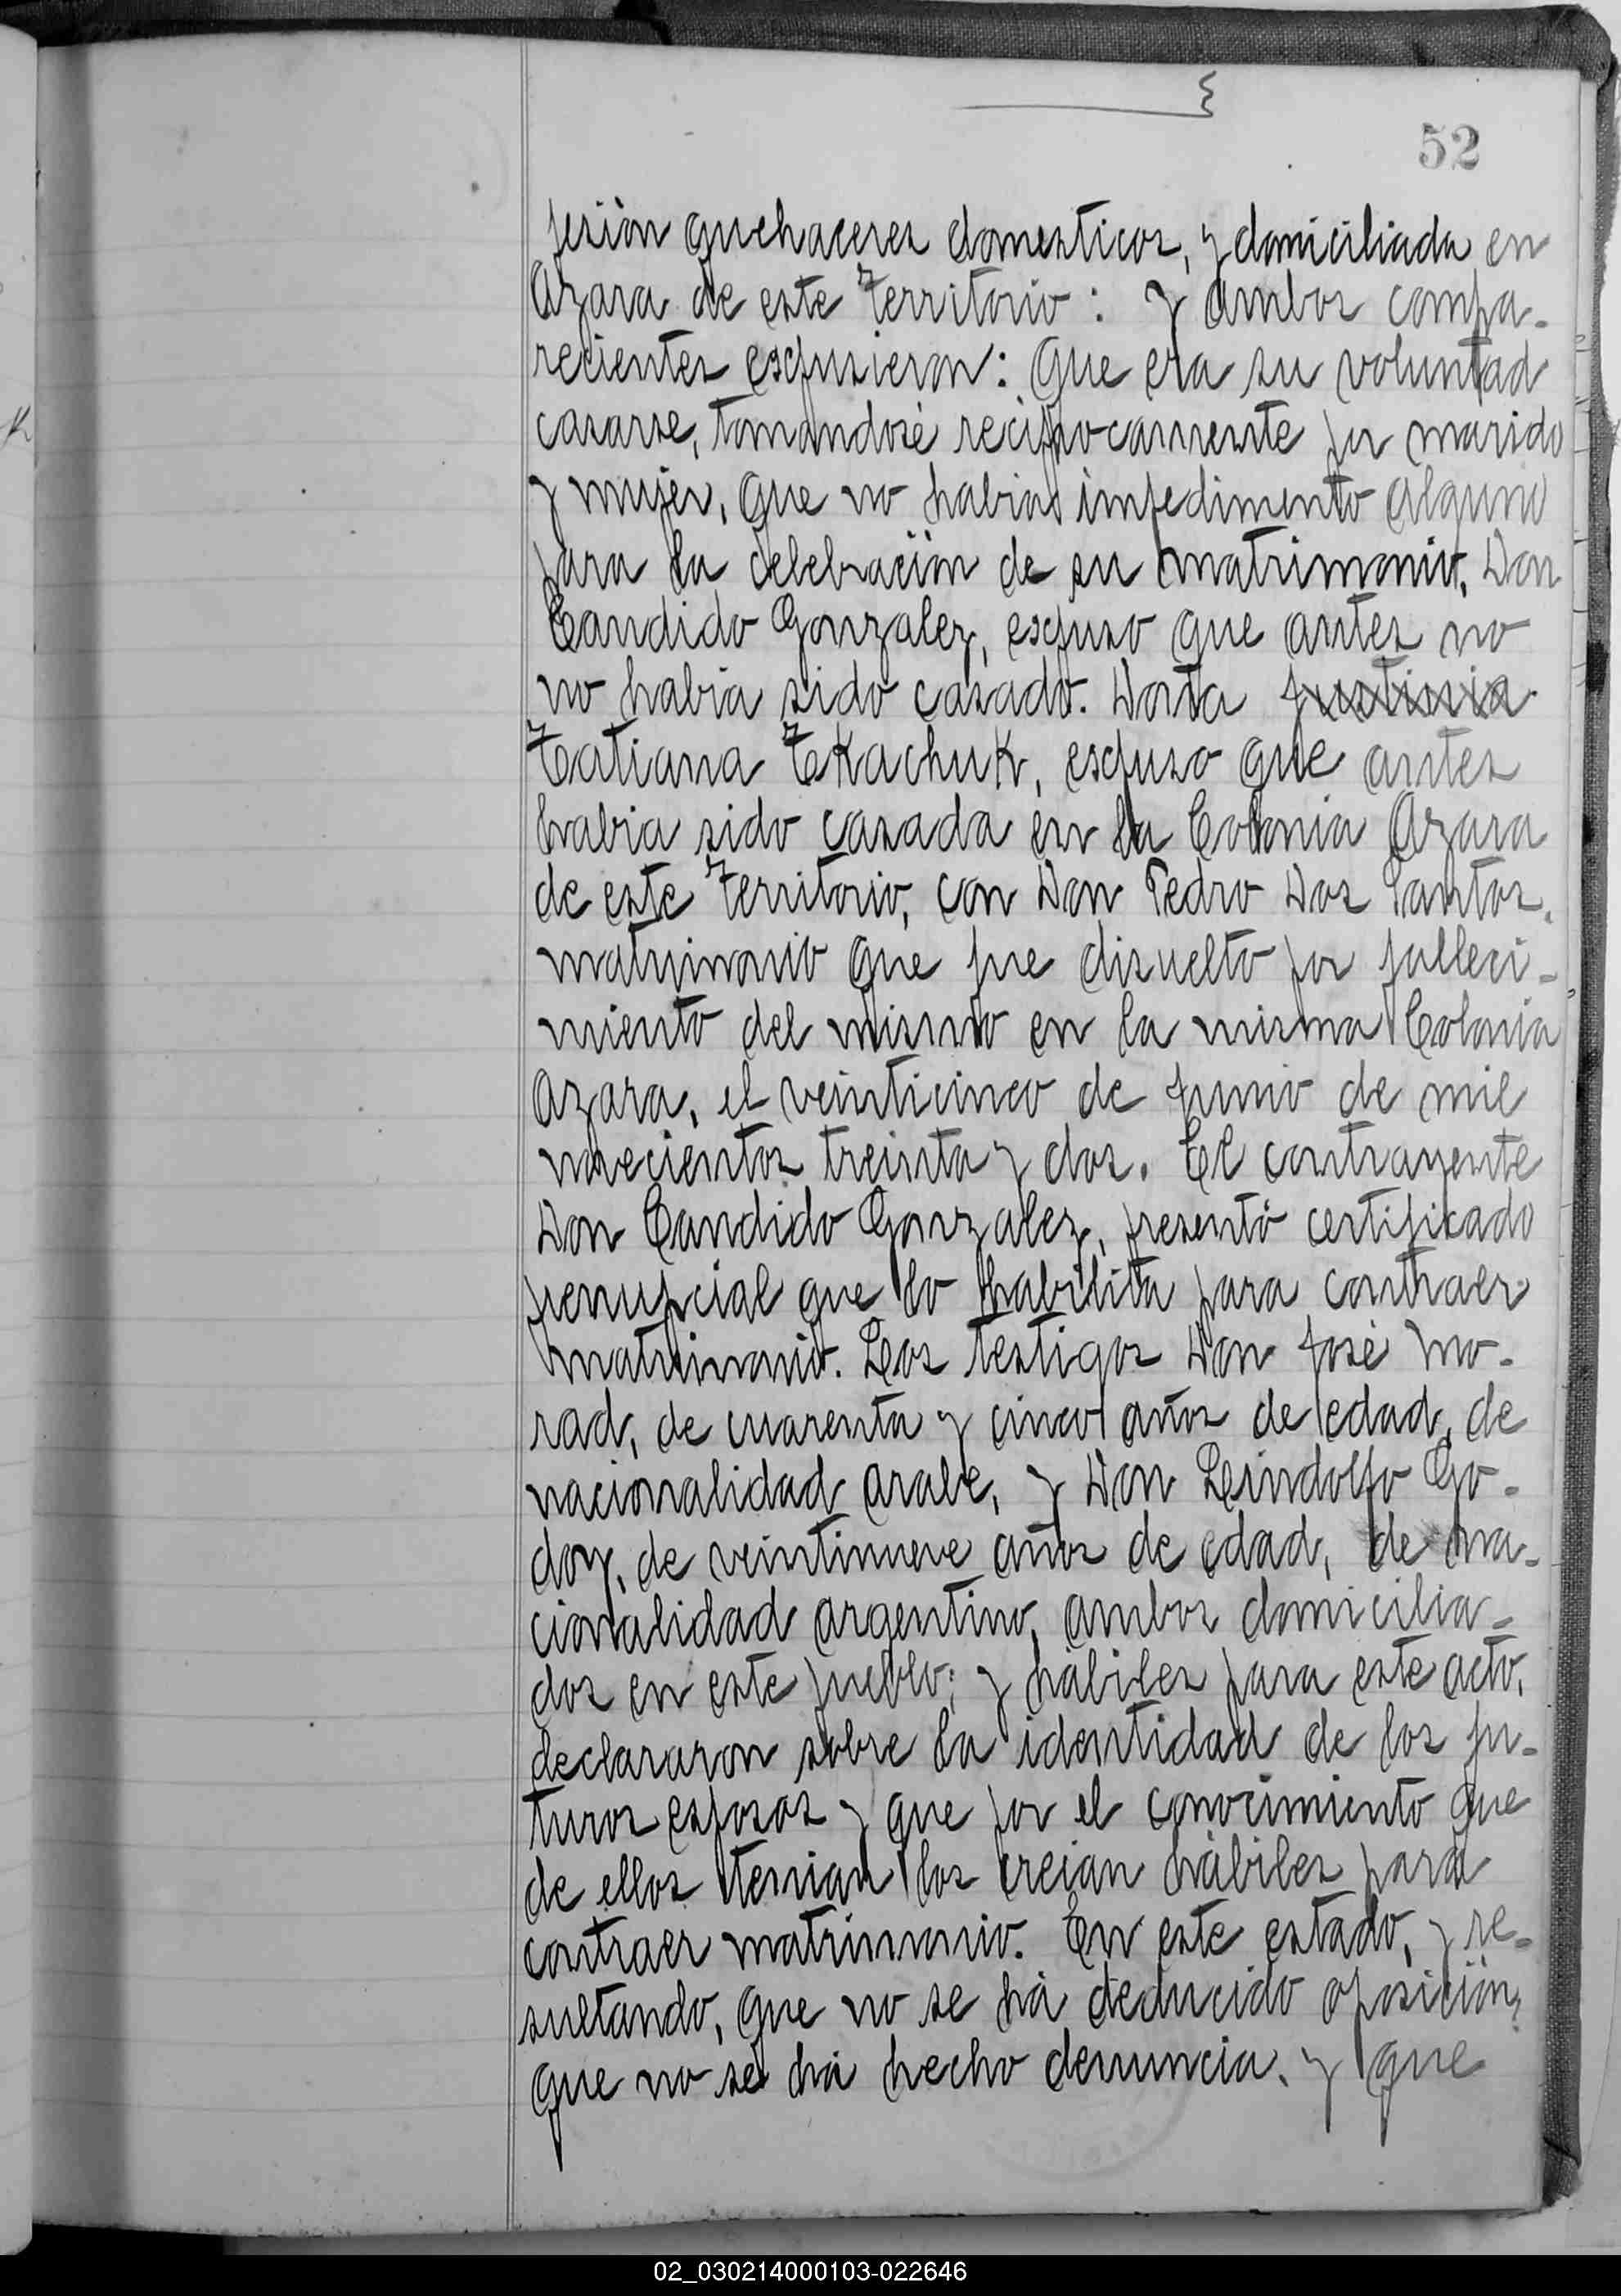 52
fesión quehaceres domesticos, y domiciliada en
Azara de este Territorio: y ambos compa-
recientes espusieron: Que era su voluntad
casarse, tomandosé reciprocamente por marido
y mujer, que no habia impedimento alguno
para la celebración de su matrimonio. Don
Candido Gonzalez, espuso que antes no
no habia sido casado. Doña Justinia
Tatiana Tkachuk, espuso que antes
habia sido casada en la Colonia Azara
de este Territorio, con Don Pedro Dos Santos,
matrimonio que fue disuelto por falleci-
miento del mismo en la misma Colonia
Azara, el veinticinco de Junio de mil
novecientos treinta y dos. El contrayente
Don Candido Gonzalez, presentó certificado
prenupcial que lo habilita para contraer
matrimonio. Los testigos Don José Mo-
rad, de cuarenta y cinco años de edad, de
nacionalidad arabe, y Don Lindolfo Go-
doy, de veintinueve años de edad, de na-
cionalidad argentino, ambos domicilia-
dos en este pueblo; y hábiles para este acto,
declararon sobre la identidad de los fu-
turos esposos y que por el conocimiento que
de ellos tenian los creian hábiles para
contraer matrimonio. En este estado, y re-
sultando, que no se há deducido oposición,
que no se há hecho denuncia, y que
02_030214000103-022646